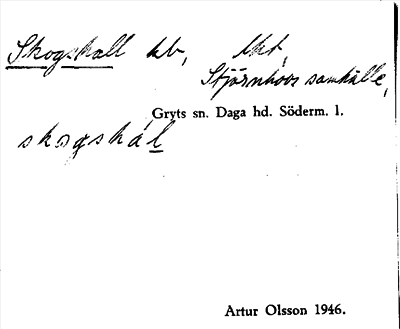 Skogshall hb, lht,
Stjärnhovs samhälle,
Gryts sn. Daga hd. Söderm. l.
skogshál
Artur Olsson 1946.